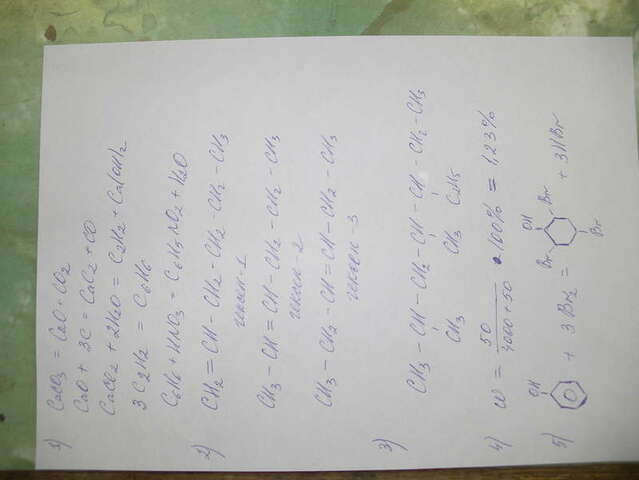 1) CaCO3 = CaO + CO2
CaO + 3C = CaC2 + CO
CaC2 + 2H2O = C2H2 + Ca(OH)2
3C2H2 = C6H6
C6H6 + HNO3 = C6H5NO2 + H2O
2) CH2 = CH - CH2 - CH2 - CH2 - CH3
гексен-1
CH3 - CH = CH - CH2 - CH2 - CH3
гексен-2
CH3 - CH2 - CH = CH - CH2 - CH3
гексен-3
3) CH3 - CH - CH2 - CH - CH - CH2 - CH3
CH3 CH3 C2H5
4) w = 50 / 4000 + 50 • 100% = 1,23%
5) OH + 3Br2 = Br OH Br Br + 3HBr